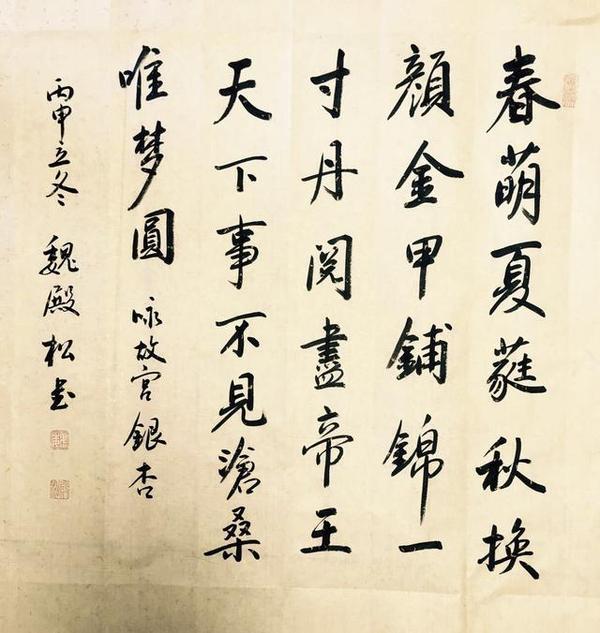 春萌夏蕤秋换
顏金甲鋪錦一
寸丹阅盡帝王
天下事不見滄桑
唯梦圓 咏故宫銀杏
丙申立冬 魏殿松书